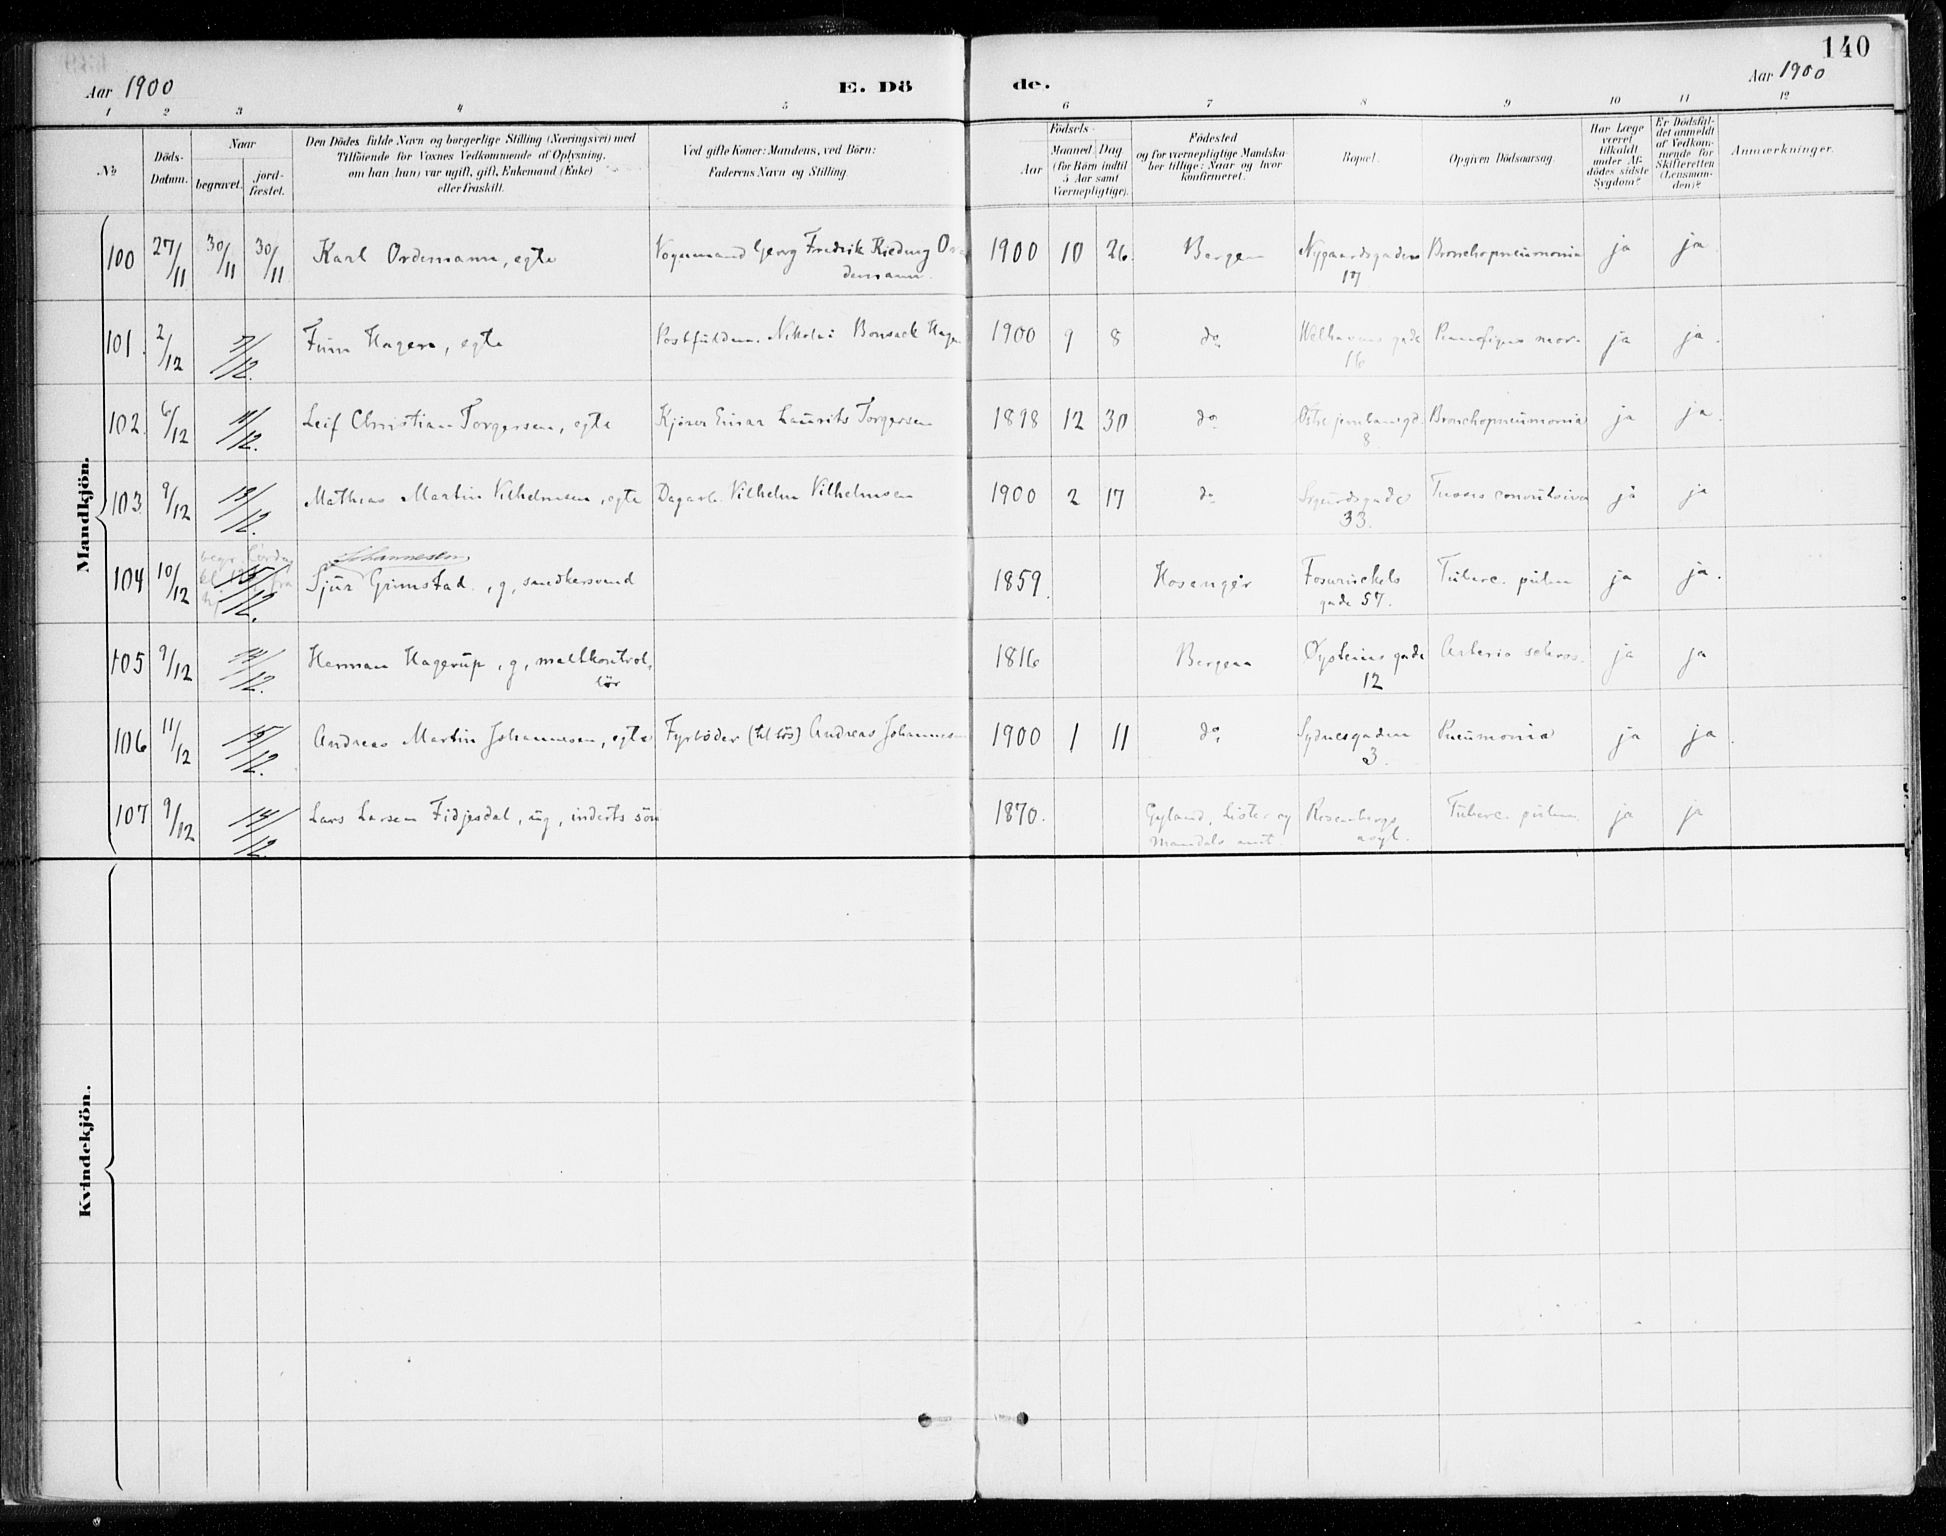 140
Aar 1900
E. Dö
de.
Aar 1900
1 2 3 4 5 6 7 8 9 10 11 12
№
Döds-
Datum.
Naar
begravet.
jord-
fæstet.
Den Dödes fulde Navn og borgerlige Stilling (Næringsvei) med
Tilföiende for Voxnes Vedkommende af Oplysning,
om han (hun) var ugift, gift, Enkemand (Enke)
eller fraskilt.
Ved gifte Koner: Mandens, ved Börn:
Faderens Navn og Stilling.
Födsels-
Aar
Maaned. Dag
(for Börn indtil
5 Aar samt
Værnepligtige).
Födested
og for værnepligtige Mandska-
ber tillige: Naar og hvor
konfirmeret.
Bopæl.
Opgiven Dödsaarsag.
Har Læge
været
tilkaldt
under Af-
dödes sidste
Sygdom?
Er Dödsfal-
det anmeldt
af Vedkom-
mende for
Skifteretten
(Lensman-
den)?
Anmærkninger.
Mandkjön.
100 27/11 30/11 30/11 Karl Ordemann, egte Vognmand Georg Fredrik Rieding Or
demann 1900 10 26 Bergen Nygaardsgaden Bronchopneumonia ja ja
17
101. 2/12 7/12. Finn Hagen, egte Postfuldm. Nikolai Bonsack Hagen 1900 9 8 do Welhavens gade ja ja.
16
102. 6/12 11/12. Leif Christian Torgersen, egte Kjører Einar Laurits Torgersen 1898 12 30 do Østre jernbanegd. Bronchopneumonia ja ja.
8
103. 9/12 14/12. Mathias Martin Vilhelmsen, egte Dagarb. Vilhelm Vilhelmsen 1900 2 17 do Sigurdsgade Tussis convulsiva ja ja
33.
Johannessen
104 10/12 15/12. Sjur Grimstad, g, smedkersvend 1859. Hosanger Fosswinckels Tuberc. pulm ja ja.
gade 57.
105 9/12 14/12. Herman Hagerup, g, maltkontrol-
lør 1816 Bergen Øysteins gade Arterio scleros. ja ja
12
106 11/12 15/12. Andreas Martin Johannesen, egte Fyrbøder (tilsøs) Andreas Johannesen 1900 1 11 do Sydnesgaden Pneumonia ja ja.
3.
107 9/12 14/12. Lars Larsen Fidjesdal, ug, inderts søn 1870. Gyland, Lister og Rosenbergs Tuberc. pulm. ja ja
Mandals amt. asyl.
Kvindekjön.